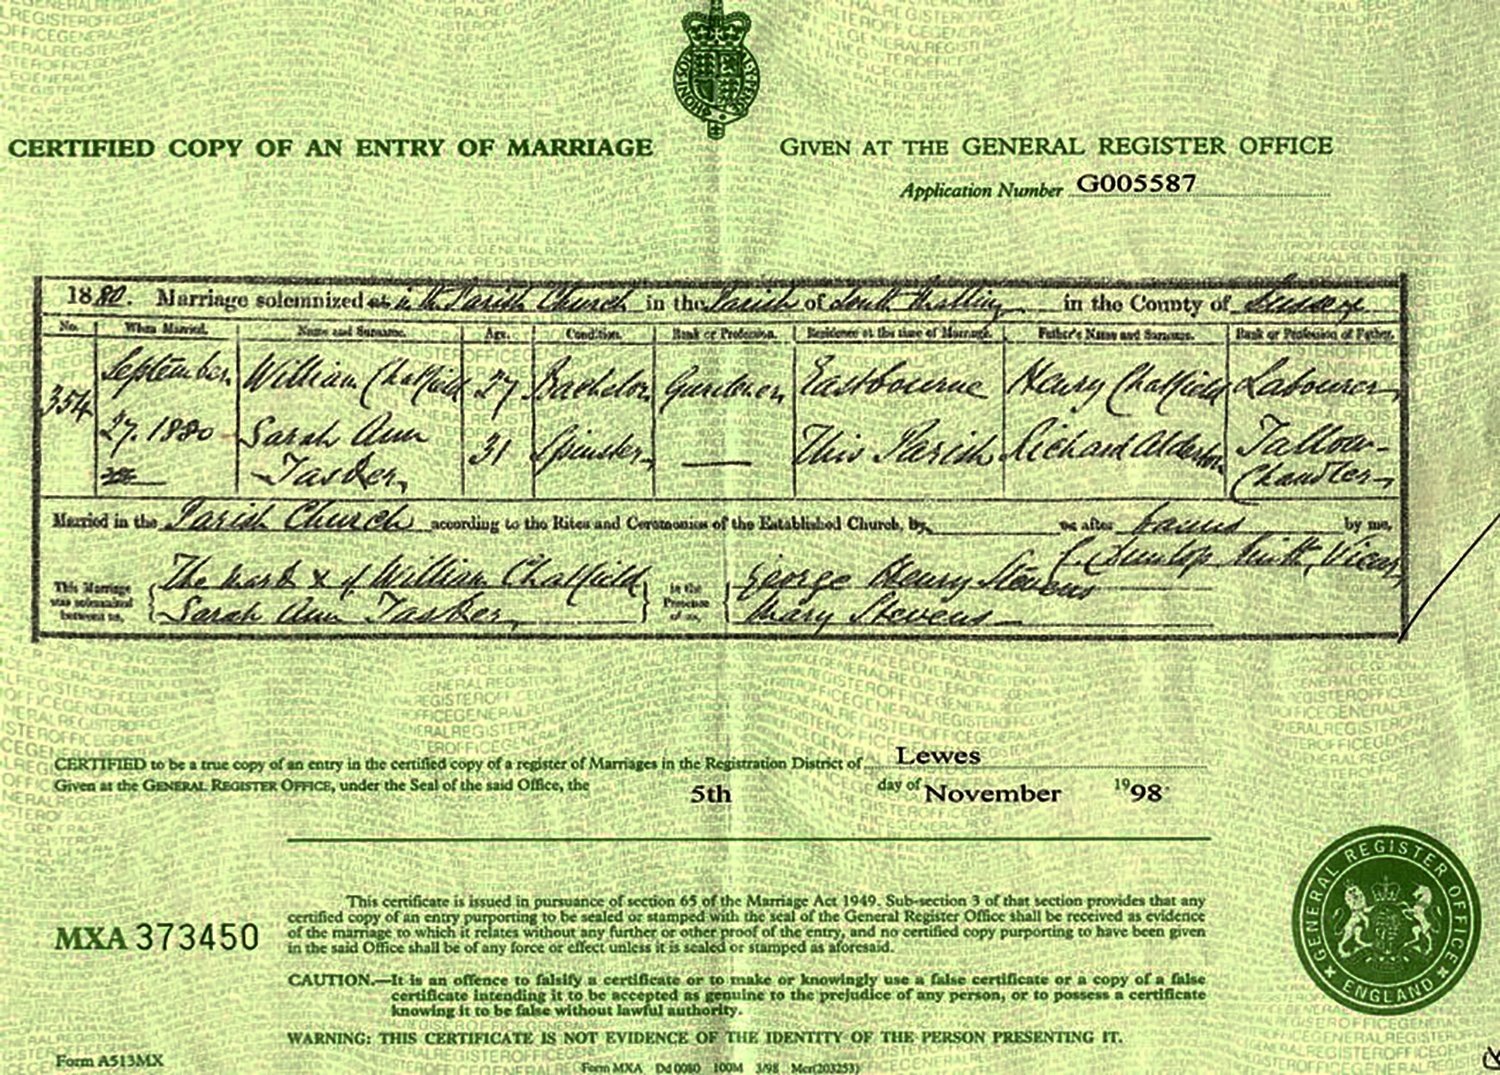 CERTIFIED COPY OF AN ENTRY OF MARRIAGE
GIVEN AT THE GENERAL REGISTER OFFICE
Application Number G005587
1880. Marriage solemnized at in the Parish Church in the Parish of South Malling in the County of Sussex
No. When Married. Name and Surname. Age. Condition. Rank or Profession. Residence at the time of Marriage. Father's Name and Surname. Rank or Profession of Father.
354 September 27. 1880 William Chatfield 27 Bachelor Gardener Eastbourne Henry Chatfield Labourer
Sarah Ann Tasker 31 Spinster — This Parish Richard Alderton Tallow-Chandler
Married in the Parish Church according to the Rites and Ceremonies of the Established Church, by or after banns by me,
Dunlop Smith, Vicar
This Marriage was solemnized between us, The mark x of William Chatfield
Sarah Ann Tasker
in the Presence of us, George Henry Stevens
Mary Stevens
CERTIFIED to be a true copy of an entry in the certified copy of a register of Marriages in the Registration District of Lewes
Given at the GENERAL REGISTER OFFICE, under the Seal of the said Office, the 5th day of November 1998
MXA 373450
This certificate is issued in pursuance of section 65 of the Marriage Act 1949. Sub-section 3 of that section provides that any
certified copy of an entry purporting to be sealed or stamped with the seal of the General Register Office shall be received as evidence
of the marriage to which it relates without any further or other proof of the entry, and no certified copy purporting to have been given
in the said Office shall be of any force or effect unless it is sealed or stamped as aforesaid.
CAUTION.—It is an offence to falsify a certificate or to make or knowingly use a false certificate or a copy of a false
certificate intending it to be accepted as genuine to the prejudice of any person, or to possess a certificate
knowing it to be false without lawful authority.
WARNING: THIS CERTIFICATE IS NOT EVIDENCE OF THE IDENTITY OF THE PERSON PRESENTING IT.
GENERAL REGISTER OFFICE
ENGLAND
Form A513MX
Form MXA Dd 0080 100M 3/98 Mcr(203253)